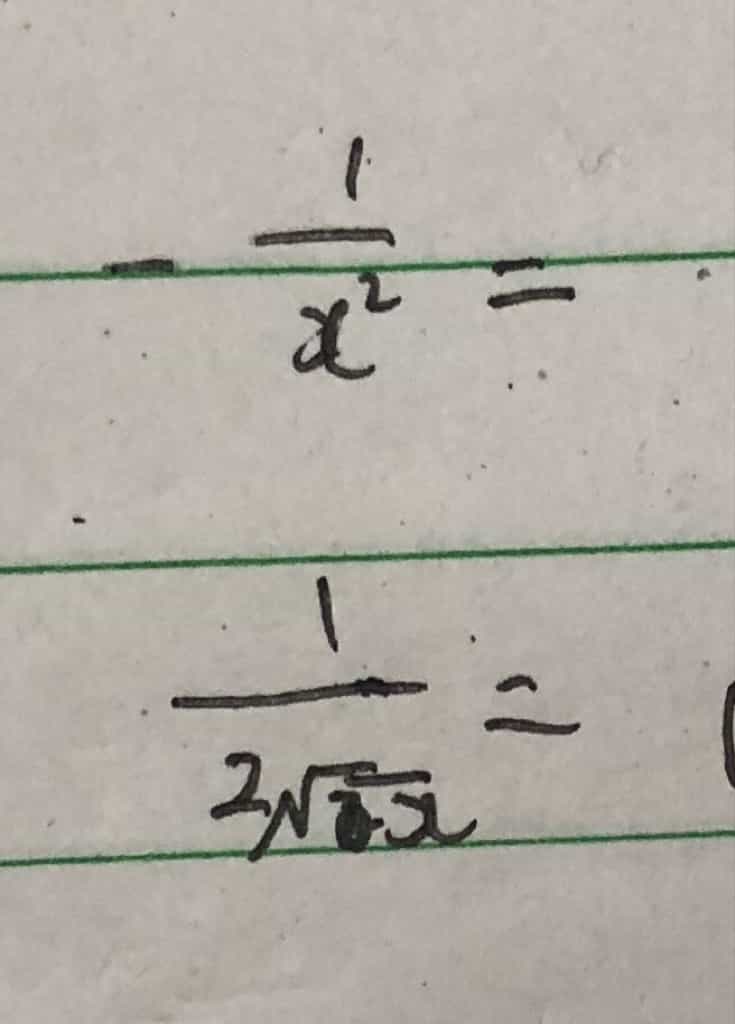 - 1/x² =
1/2√x =